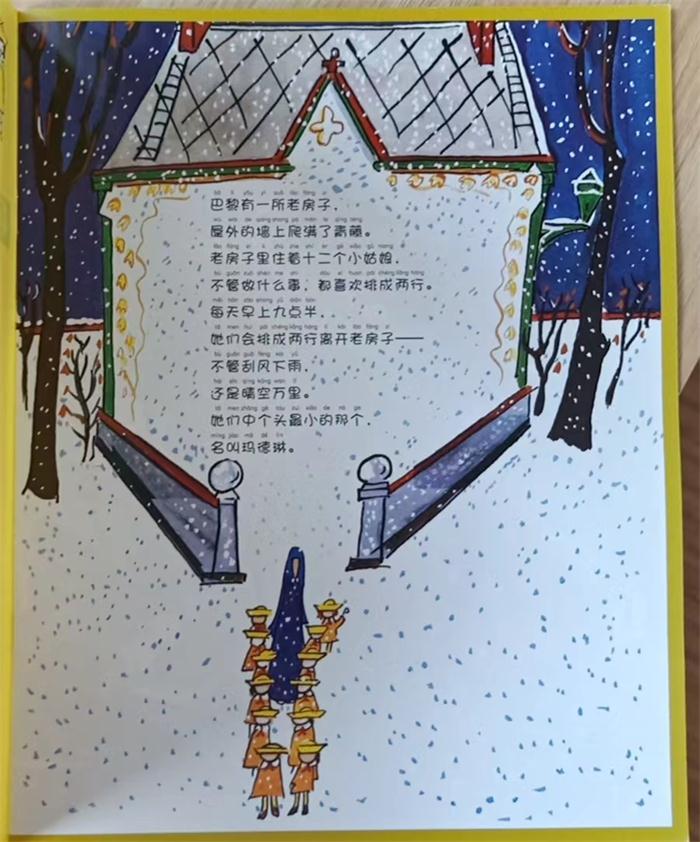 巴黎有一所老房子，
屋外的墙上爬满了青藤。
老房子里住着十二个小姑娘，
不管做什么事，都喜欢排成两行。
每天早上九点半，
她们会排成两行离开老房子——
不管刮风下雨，
还是晴空万里。
她们中个头最小的那个，
名叫玛德琳。